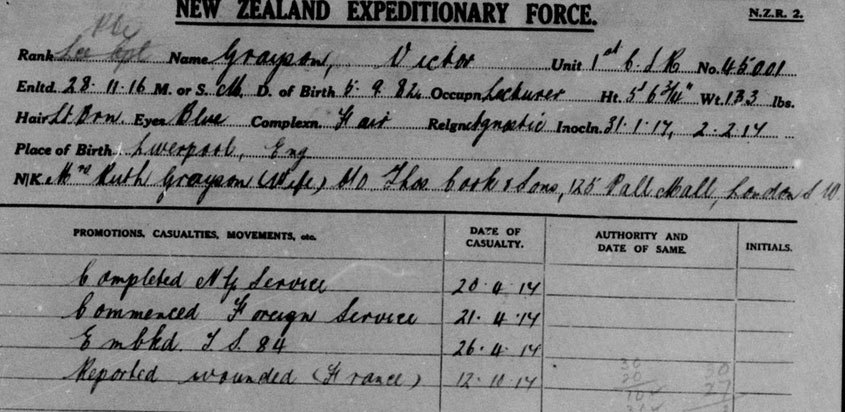 NEW ZEALAND EXPEDITIONARY FORCE.
N.Z.R. 2.
Pte
Rank Lce Cpl Name Grayson, Victor Unit 1st C.I.R No. 45001
Enltd. 28.11.16 M. or S. M. D. of Birth 5.9.82 Occupn Lecturer Ht. 5' 6 3/4" Wt. 133 lbs.
Hair Lt Brn. Eyes Blue Complexn. Fair Relgn. Agnostic Inocln. 31.1.17, 2.2.17
Place of Birth Liverpool, Eng
N/K Mrs Ruth Grayson (Wife) Thos Cook & Sons, 125 Pall Mall, London S.W.
PROMOTIONS, CASUALTIES, MOVEMENTS, etc. DATE OF CASUALTY. AUTHORITY AND DATE OF SAME. INITIALS.
Completed NZ Service 20.4.17
Commenced Foreign Service 21.4.17
Embkd. T.S. 84 26.4.17
Reported wounded (France) 12.10.17